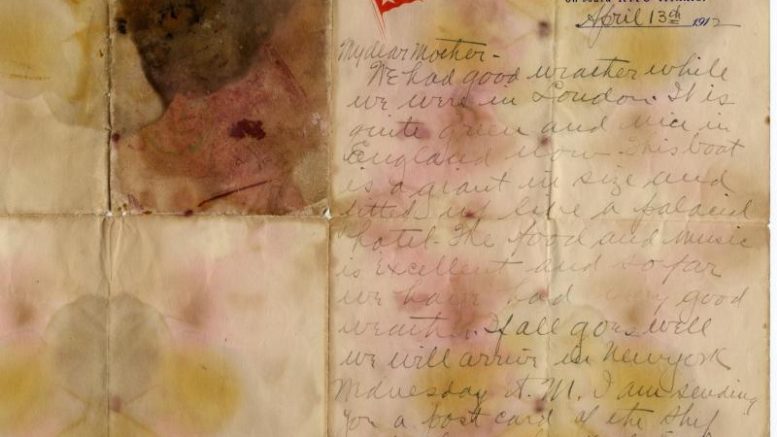 On board R.M.S. "Titanic".
April 13th 1912
My dear Mother -
We had good weather while
we were in London. It is
quite green and nice in
England now. This boat
is a giant in size and
fitted up like a palacial
hotel. The food and music
is excellent and so far
we have had very good
weather. If all goes well
we will arrive in New york
Wednesday A. M. I am sending
you a post card of the ship